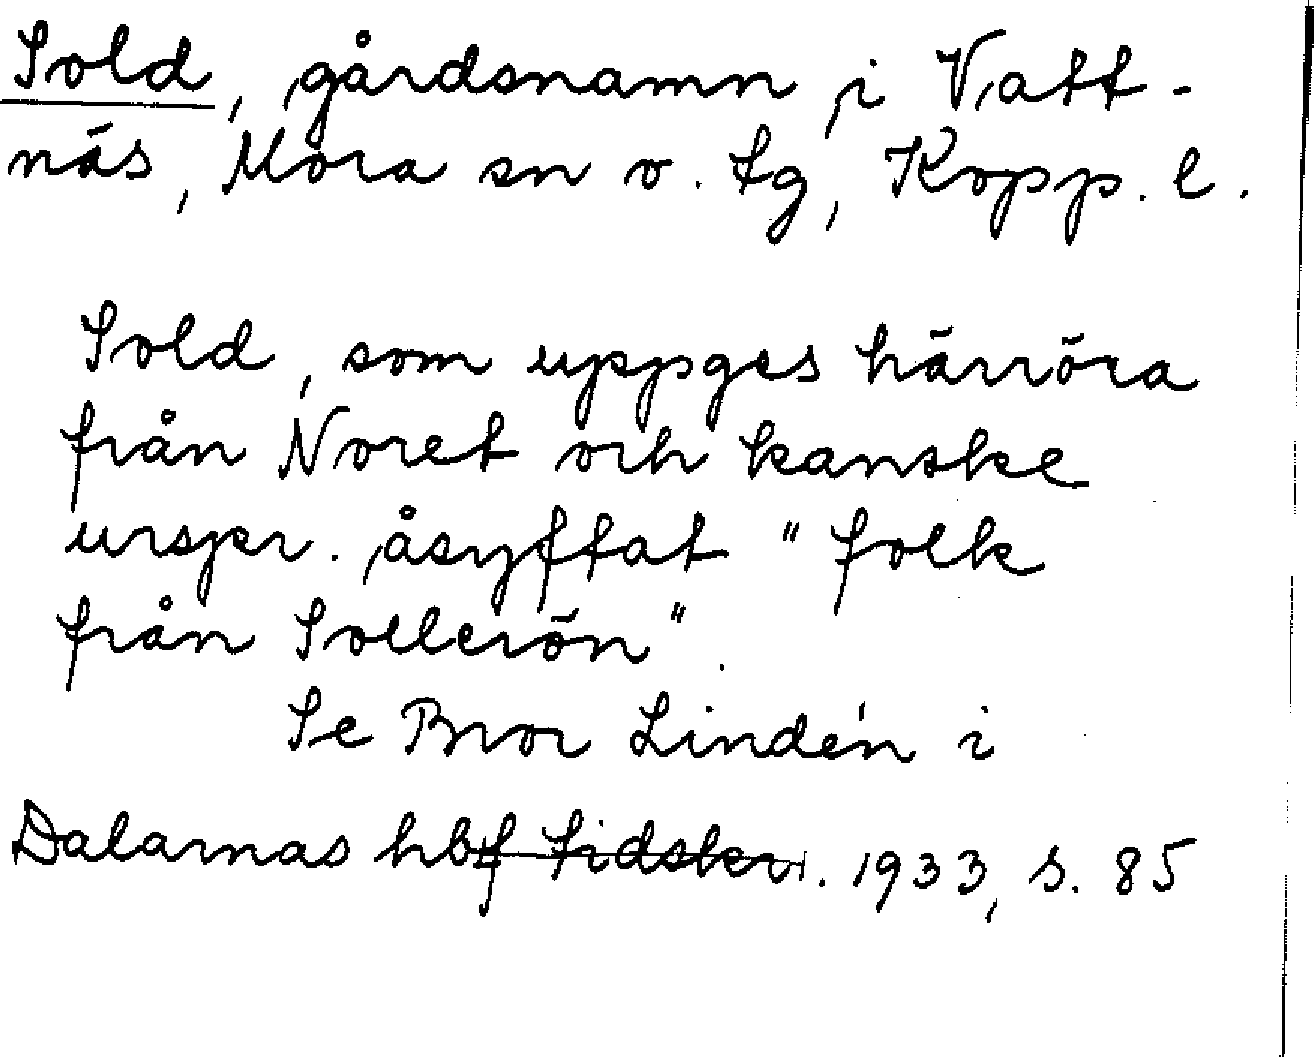 Sold, gårdsnamn i Vatt-
näs, Mora sn o. tg, Kopp. l.
Sold, som uppges härröra
från Noret och kanske
urspr. åsyftat "folk
från Sollerön".
Se Bror Lindén i
Dalarnas hbf tidskr. 1933, s. 85